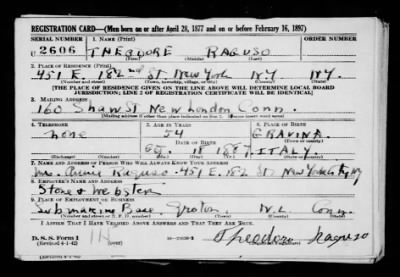 REGISTRATION CARD—(Men born on or after April 28, 1877 and on or before February 16, 1897)
SERIAL NUMBER 1. NAME (Print)
U 2606 THEODORE RAGUSO
(First) (Middle) (Last)
2. PLACE OF RESIDENCE (Print)
451 E. 182nd St. New York NY. NY.
(Number and street) (Town, township, village, or city) (County) (State)
[THE PLACE OF RESIDENCE GIVEN ON THE LINE ABOVE WILL DETERMINE LOCAL BOARD
JURISDICTION; LINE 2 OF REGISTRATION CERTIFICATE WILL BE IDENTICAL]
3. MAILING ADDRESS
160 Shaw St New London Conn.
4. TELEPHONE 5. AGE IN YEARS 6. PLACE OF BIRTH
None 54 GRAVINA
DATE OF BIRTH
18 1887 ITALY.
7. NAME AND ADDRESS OF PERSON WHO WILL ALWAYS KNOW YOUR ADDRESS
Mrs. Annie Raguso - 451 E. 182 St New York City NY
8. EMPLOYER'S NAME AND ADDRESS
Stone & Webster
9. PLACE OF EMPLOYMENT OR BUSINESS
Submarine Base Groton N.L. Conn.
(Number and street or R. F. D. number) (Town) (County) (State)
I AFFIRM THAT I HAVE VERIFIED ABOVE ANSWERS AND THAT THEY ARE TRUE.
D. S. S. Form 1
(Revised 4-1-42) Theodore Raguso